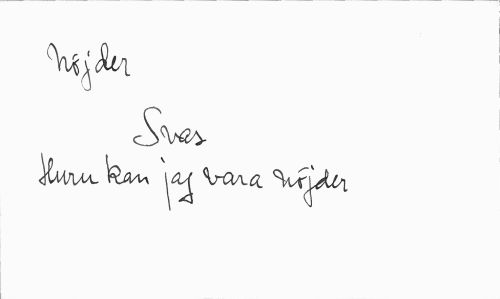 nöjder
Svas
Huru kan jag vara nöjder